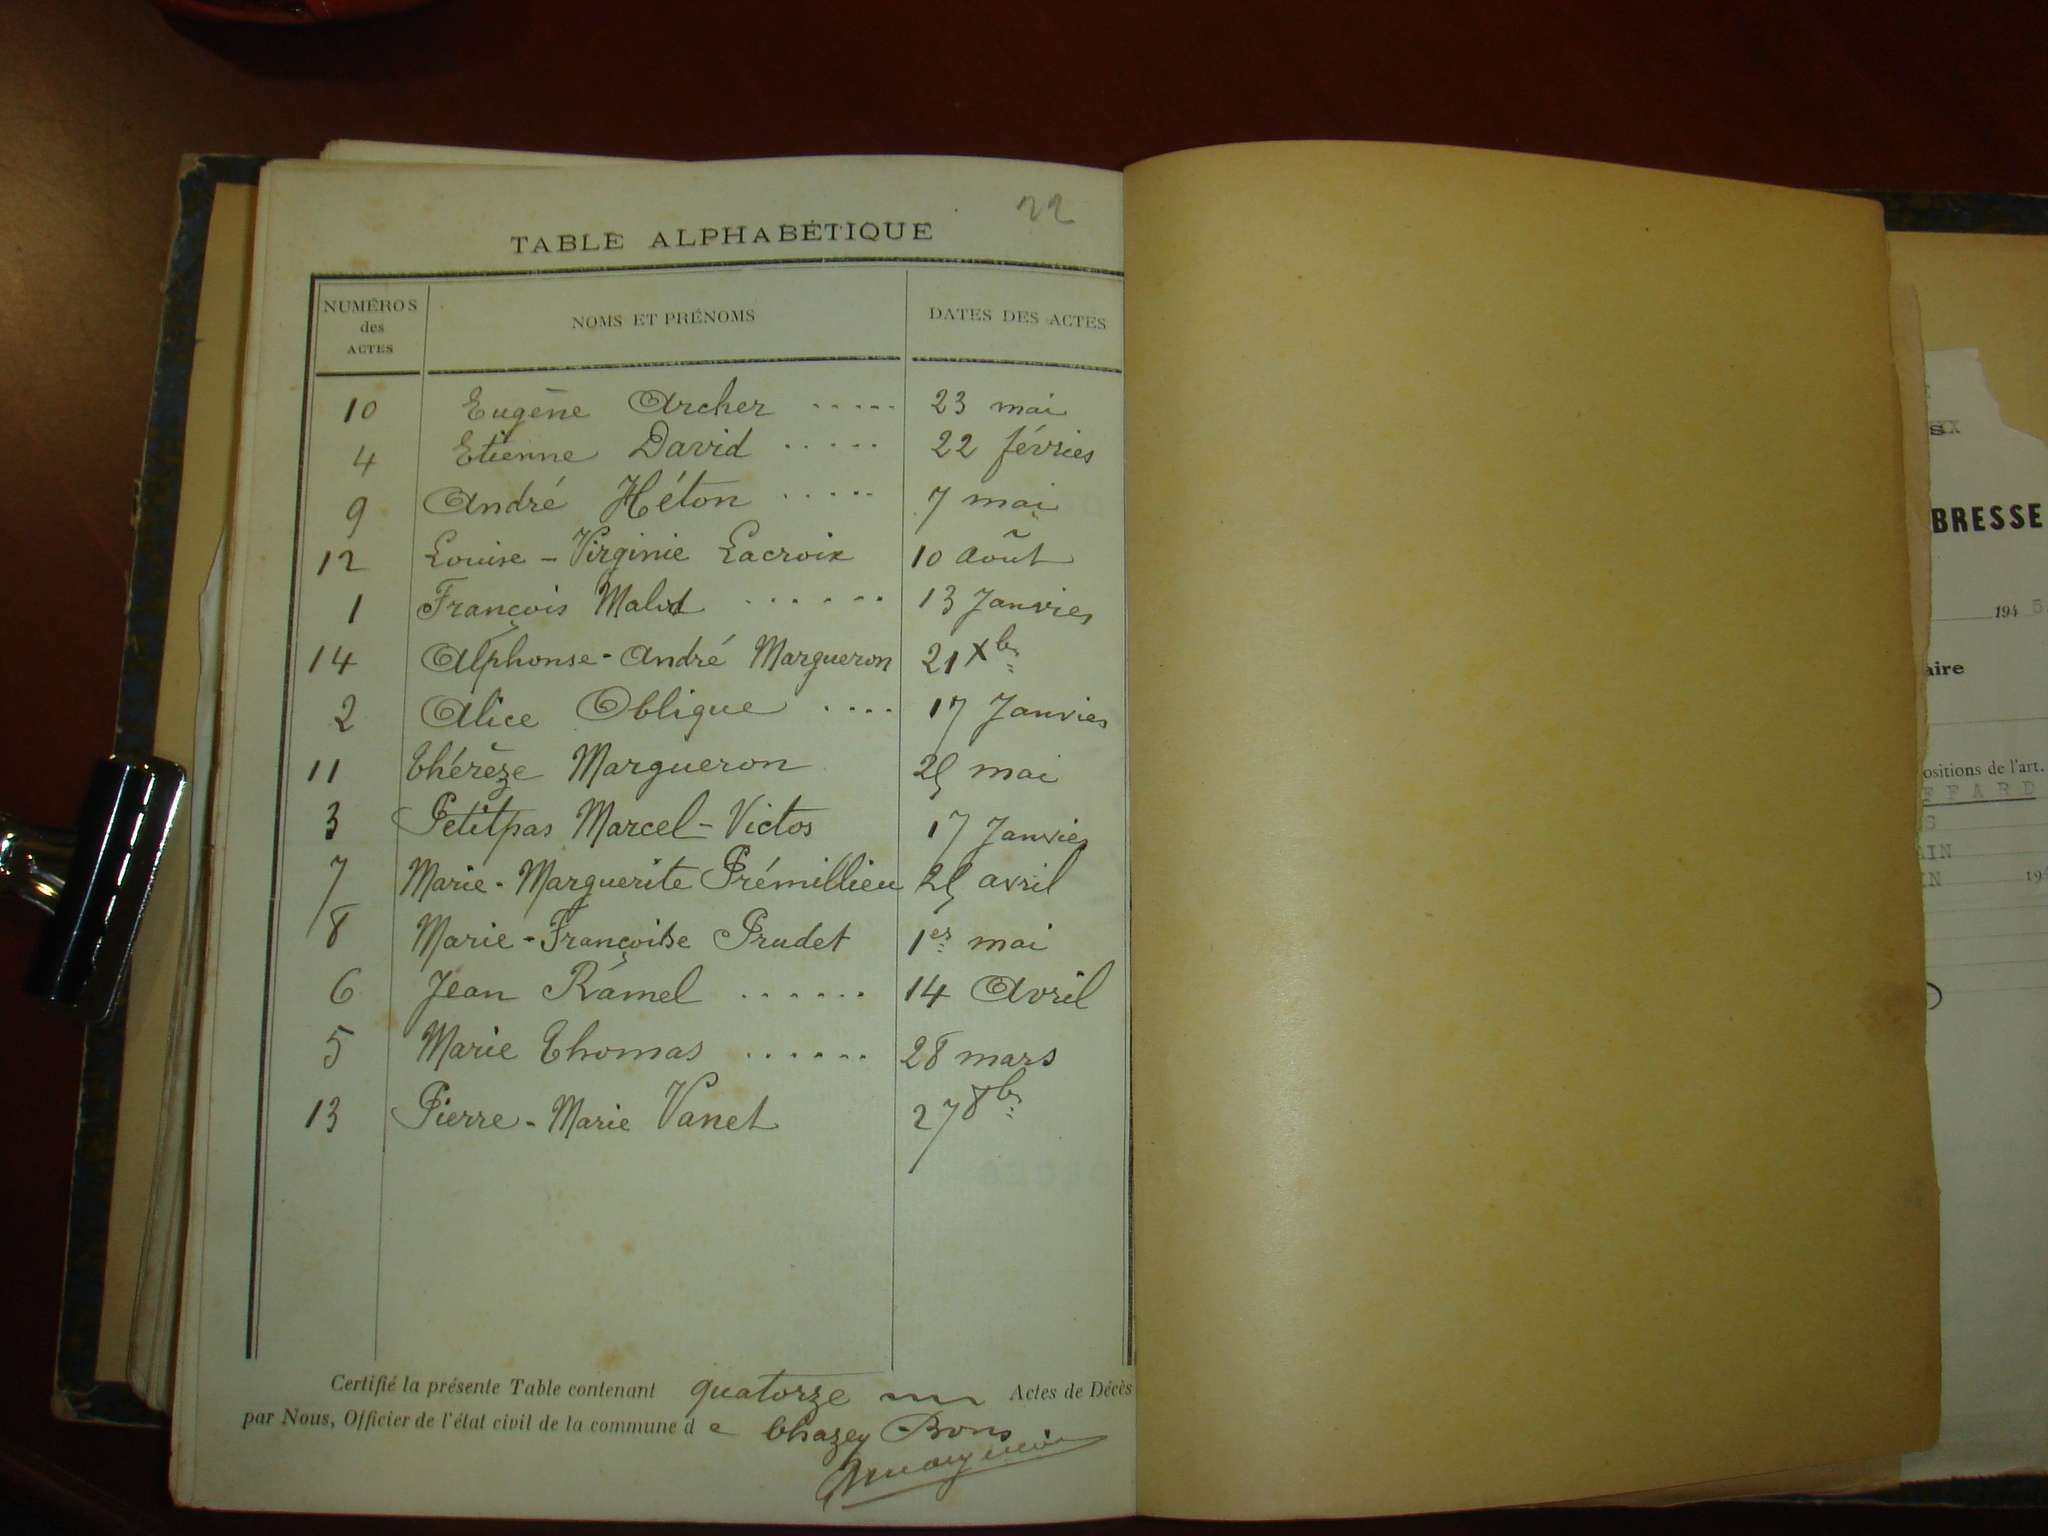 22
TABLE ALPHABÉTIQUE
NUMÉROS des ACTES NOMS ET PRÉNOMS DATES DES ACTES
10 Eugène Archer ..... 23 mai
4 Etienne David ..... 22 février
9 André Héton ..... 7 mai
12 Louise - Virginie Lacroix 10 Août
1 François ...... 13 Janvier
14 Alphonse - André Margueron 21 Xbre
2 Alice Oblique .... 17 Janvier
11 Thérèze Margueron 25 mai
3 Petitpas Marcel - Victor 17 Janvier
7 Marie - Marguerite Prémillieu 25 avril
8 Marie - Françoise Prudet 1er mai
6 Jean Ramel ...... 14 Avril
5 Marie Thomas ...... 28 mars
13 Pierre - Marie Vanet 27 8bre
Certifié la présente Table contenant quatorze Actes de Décès
par Nous, Officier de l'état civil de la commune de Chazey Bons
BRESSE
194 5
aire
ositions de l'art.
FFARD
S
AIN
IN 194